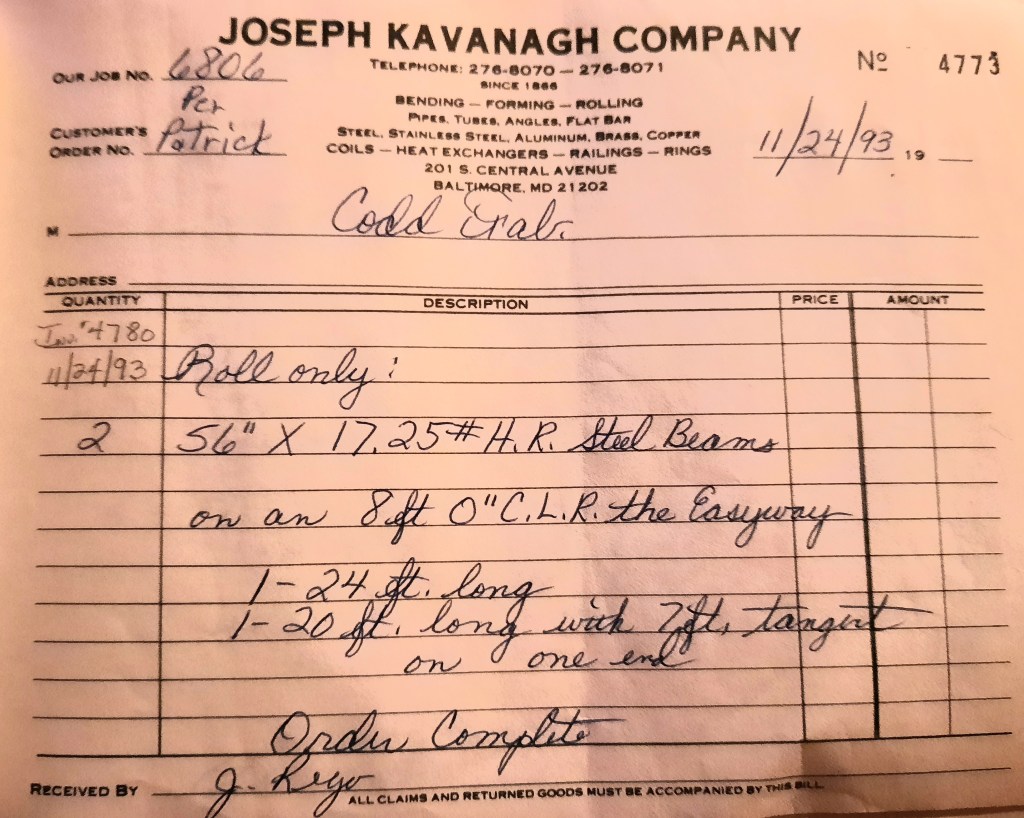 JOSEPH KAVANAGH COMPANY
TELEPHONE: 276-8070 — 276-8071
SINCE 1866
BENDING — FORMING — ROLLING
PIPES, TUBES, ANGLES, FLAT BAR
STEEL, STAINLESS STEEL, ALUMINUM, BRASS, COPPER
COILS — HEAT EXCHANGERS — RAILINGS — RINGS
201 S. CENTRAL AVENUE
BALTIMORE, MD 21202
No 4773
OUR JOB NO. 6806
Per
CUSTOMER'S ORDER NO. Patrick
11/24/93 19
M Codd Fab.
ADDRESS
QUANTITY DESCRIPTION PRICE AMOUNT
Inv. #4780
11/24/93 Roll only:
2 S6" X 17.25# H.R. Steel Beams
on an 8 ft 0" C.L.R. the Easyway
1 - 24 ft. long
1 - 20 ft. long with 7 ft. tangent
on one end
Order Complete
RECEIVED BY J.
ALL CLAIMS AND RETURNED GOODS MUST BE ACCOMPANIED BY THIS BILL